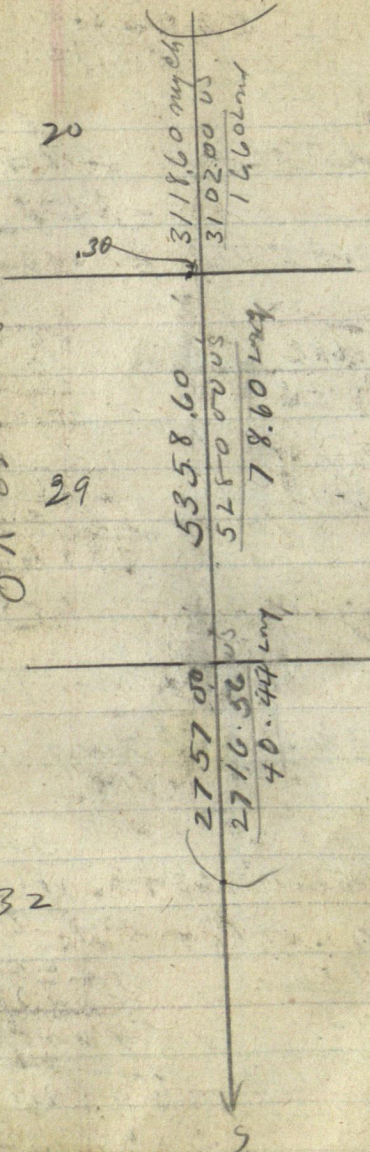 20
3118.60 my ch
3102.00 US
16.60 my
.30
29
5358.60
5280 00 US
78.60 my
2757 00
2716.56 US
40.44 my
32
S